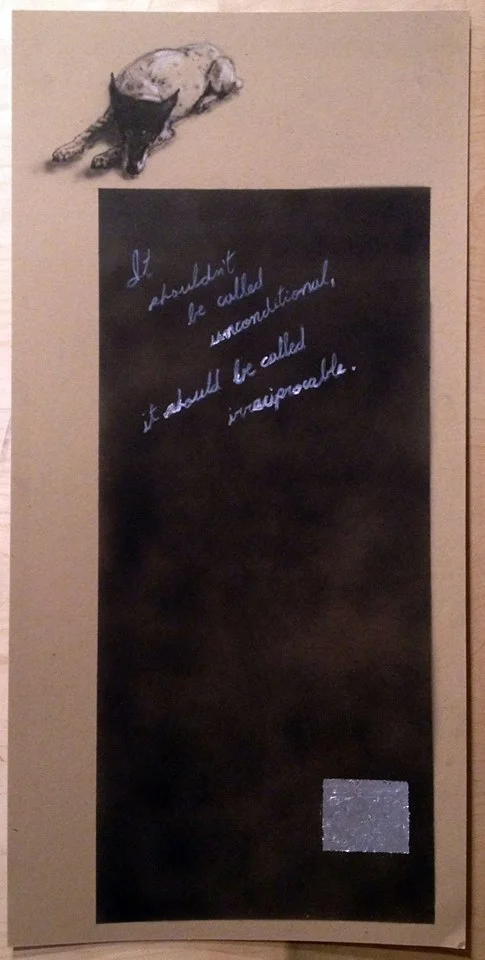 It
shouldn't
be called
unconditional,
it should be called
irreciprocable.